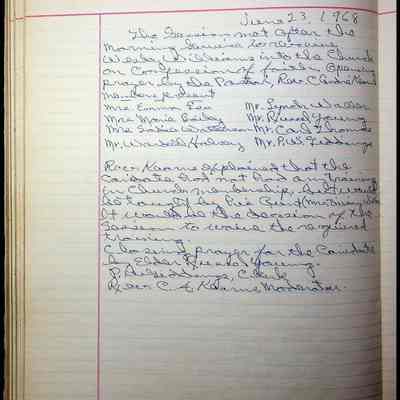 June 23, 1968
The Session met after the
morning service to receive
Wesley Williams into the Church
on Confession of faith. Opening
prayer by the Pastor, Rev. Kearns
members present
Mrs Emmon Mr. Lynch
Mrs Marie Bailey Mr. Russel Young
Mrs Mr. Carl Thomas
Mr. Wardell Mr. P.W. Giddings
Rev. Kearns explained that the
candidate had not had any training
in Church membership, but would
be taught by his
It would be the decision of the
Session to waive the required
training
Closing prayer for the Canidate
by Elder Russel Young.
P. W. Giddings, Clerk
Rev. C. E. Kearns Moderator.